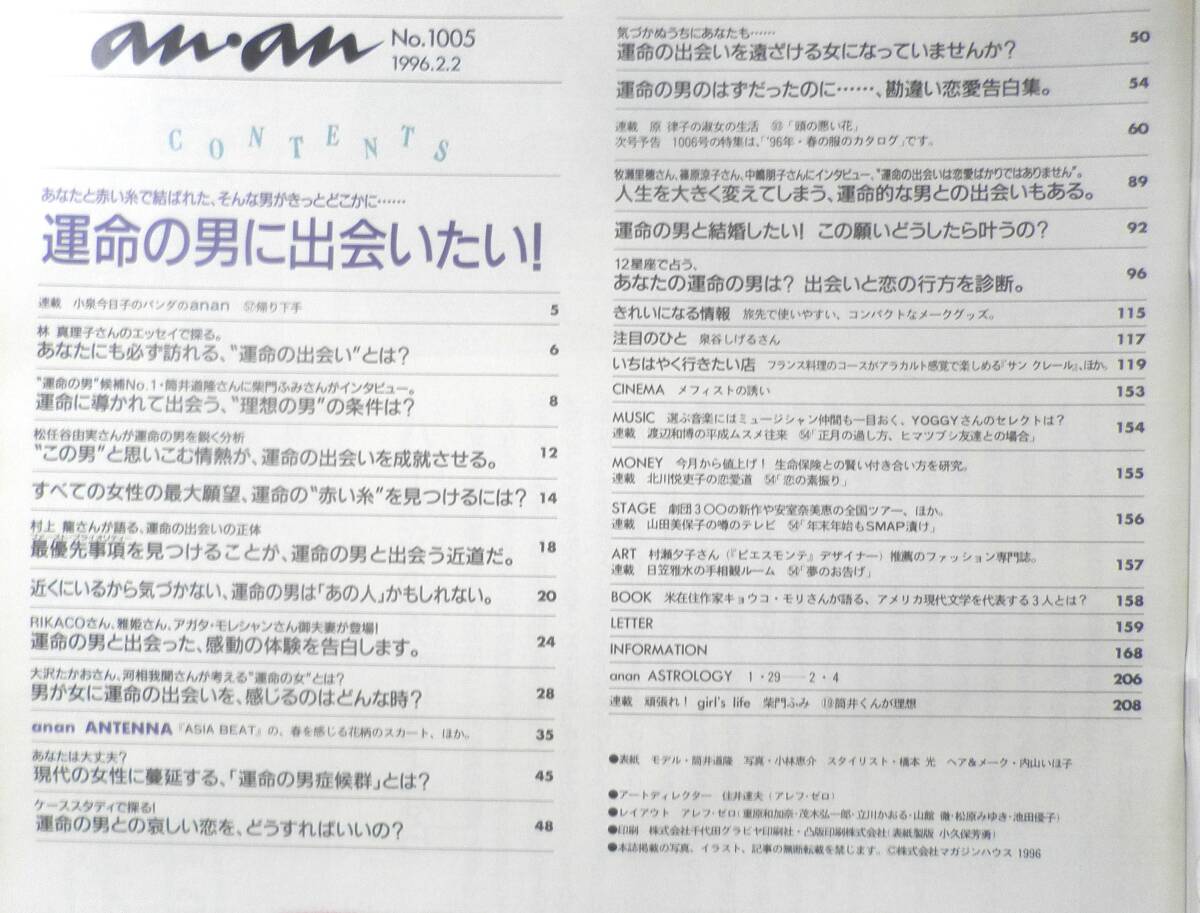 an・an No.1005
1996.2.2
CONTENTS
あなたと赤い糸で結ばれた、そんな男がきっとどこかに……
運命の男に出会いたい!
連載 小泉今日子のパンダのanan 57帰り下手 5
林 真理子さんのエッセイで探る。
あなたにも必ず訪れる、“運命の出会い”とは? 6
“運命の男”候補No.1・筒井道隆さんに柴門ふみさんがインタビュー。
運命に導かれて出会う、“理想の男”の条件は? 8
松任谷由実さんが運命の男を鋭く分析
“この男”と思いこむ情熱が、運命の出会いを成就させる。 12
すべての女性の最大願望、運命の“赤い糸”を見つけるには? 14
村上 龍さんが語る、運命の出会いの正体
ファースト・プライオリティー
最優先事項を見つけることが、運命の男と出会う近道だ。 18
近くにいるから気づかない、運命の男は「あの人」かもしれない。 20
RIKACOさん、雅姫さん、アガタ・モレシャンさん御夫妻が登場!
運命の男と出会った、感動の体験を告白します。 24
大沢たかおさん、河相我聞さんが考える“運命の女”とは?
男が女に運命の出会いを、感じるのはどんな時? 28
anan ANTENNA 『ASIA BEAT』の、春を感じる花柄のスカート、ほか。 35
あなたは大丈夫?
現代の女性に蔓延する、「運命の男症候群」とは? 45
ケーススタディで探る!
運命の男との哀しい恋を、どうすればいいの? 48
気づかぬうちにあなたも……
運命の出会いを遠ざける女になっていませんか? 50
運命の男のはずだったのに……、勘違い恋愛告白集。 54
連載 原 律子の淑女の生活 93「頭の悪い花」 60
次号予告 1006号の特集は、「'96年・春の服のカタログ」です。
牧瀬里穂さん、篠原涼子さん、中嶋朋子さんにインタビュー、“運命の出会いは恋愛ばかりではありません”。
人生を大きく変えてしまう、運命的な男との出会いもある。 89
運命の男と結婚したい! この願いどうしたら叶うの? 92
12星座で占う、
あなたの運命の男は? 出会いと恋の行方を診断。 96
きれいになる情報 旅先で使いやすい、コンパクトなメークグッズ。 115
注目のひと 泉谷しげるさん 117
いちはやく行きたい店 フランス料理のコースがアラカルト感覚で楽しめる『サン クレール』、ほか。 119
CINEMA メフィストの誘い 153
MUSIC 選ぶ音楽にはミュージシャン仲間も一目おく、YOGGYさんのセレクトは? 154
連載 渡辺和博の平成ムスメ往来 54「正月の過し方、ヒマツブシ友達との場合」
MONEY 今月から値上げ! 生命保険との賢い付き合い方を研究。 155
連載 北川悦吏子の恋愛道 54「恋の素振り」
STAGE 劇団3〇〇の新作や安室奈美恵の全国ツアー、ほか。 156
連載 山田美保子の噂のテレビ 54「年末年始もSMAP漬け」
ART 村瀬夕子さん(『ビエスモンテ』デザイナー)推薦のファッション専門誌。 157
連載 日笠雅水の手相観ルーム 54「夢のお告げ」
BOOK 米在住作家キョウコ・モリさんが語る、アメリカ現代文学を代表する3人とは? 158
LETTER 159
INFORMATION 168
anan ASTROLOGY 1・29―2・4 206
連載 頑張れ! girl's life 柴門ふみ 19筒井くんが理想 208
●表紙 モデル・筒井道隆 写真・小林恵介 スタイリスト・橋本 光 ヘア&メーク・内山いほ子
●アートディレクター 住井達夫(アレフ・ゼロ)
●レイアウト アレフ・ゼロ(重原和加奈・茂木弘一郎・立川かおる・山館 徹・松原みゆき・池田優子)
●印刷 株式会社千代田グラビヤ印刷社・凸版印刷株式会社(表紙製版 小久保芳勇)
●本誌掲載の写真、イラスト、記事の無断転載を禁じます。©株式会社マガジンハウス 1996